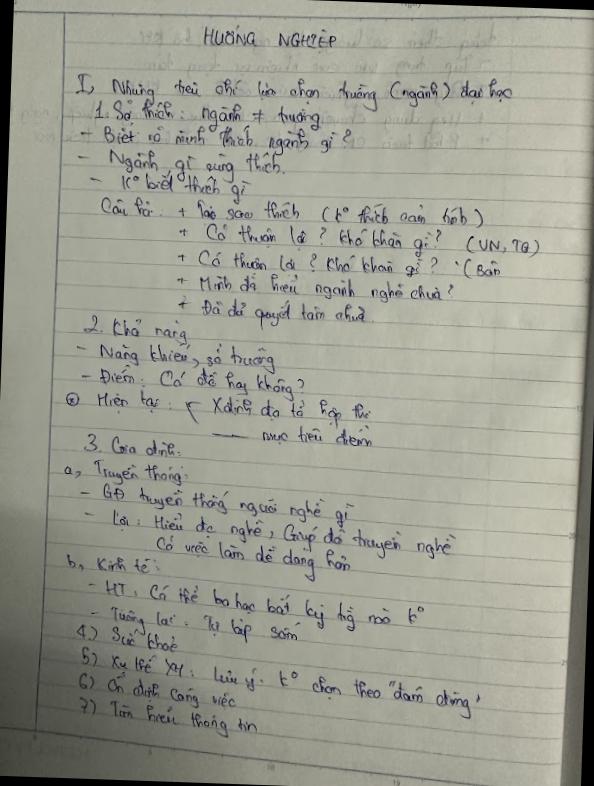 HƯỚNG NGHIỆP
I, Những tiêu chí lựa chọn trường (ngành) đại học
1. Sở thích: ngành ≠ trường
+ Biết rõ mình thích ngành gì?
- Ngành gì cũng thích.
- K° biết thích gì
Câu hỏi: + Tại sao thích (k° thích cảm tính)
+ Có thuận lợi? Khó khăn gì? (VN, TG)
+ Có thuận lợi? Khó khăn gì? (Bản
+ Mình đã hiểu ngành nghề chưa?
+ Đã đủ quyết tâm chưa
2. Khả năng
- Năng khiếu, sở trường
- Điểm: Có đủ hay không?
Hiện tại: Xđịnh đc tổ hợp thi
mục tiêu điểm
3. Gia đình:
a, Truyền thống:
- GĐ truyền thống người nghề gì
- Lợi: Hiểu đc nghề, Giúp đỡ truyền nghề
Có việc làm dễ dàng hơn
b, Kinh tế:
- HT: Có thể học bất kỳ trg nào k°
- Tương lai: Tự lập sớm
4) Sức khoẻ
5) Xu thế XH: Lưu ý: k° chọn theo "đám đông"
6) Ổn định công việc
7) Tìm hiểu thông tin